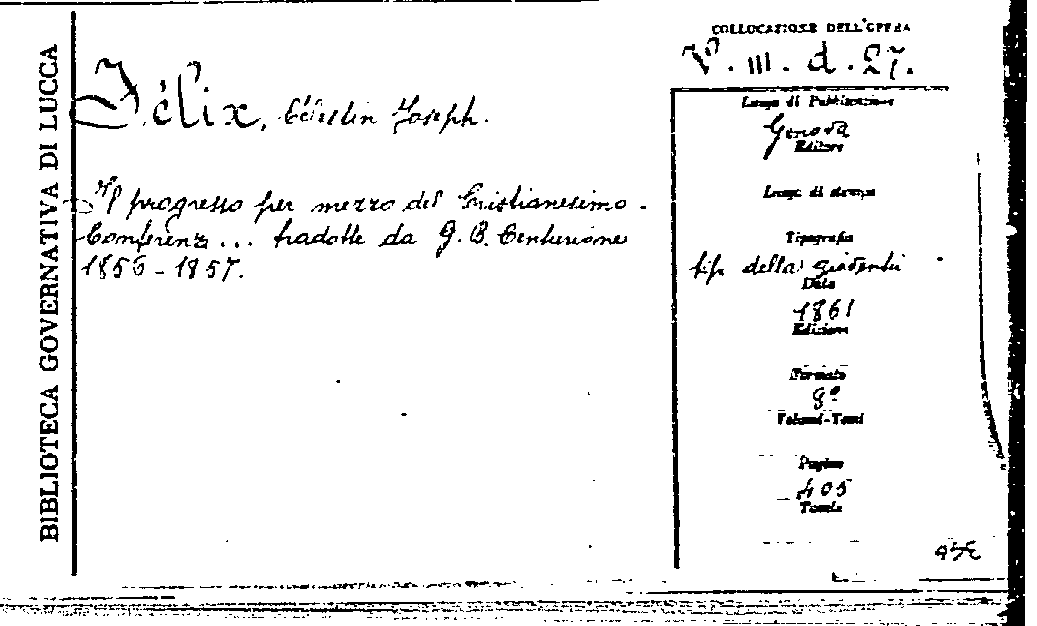 BIBLIOTECA GOVERNATIVA DI LUCCA
Félix, Célestin Joseph.
Il progresso per mezzo del Cristianesimo.
Conferenz... tradotte da G. B. Centurione
1856-1857.
COLLOCAZIONE DELL'OPERA
V. III. d. 27.
Luogo di Pubblicazione
Genova
Editore
Luogo di stampa
Tipografia
tip. della gioventù
Data
1861
Edizione
Formato
8º
Volumi-Tomi
Pagine
405
Tavole